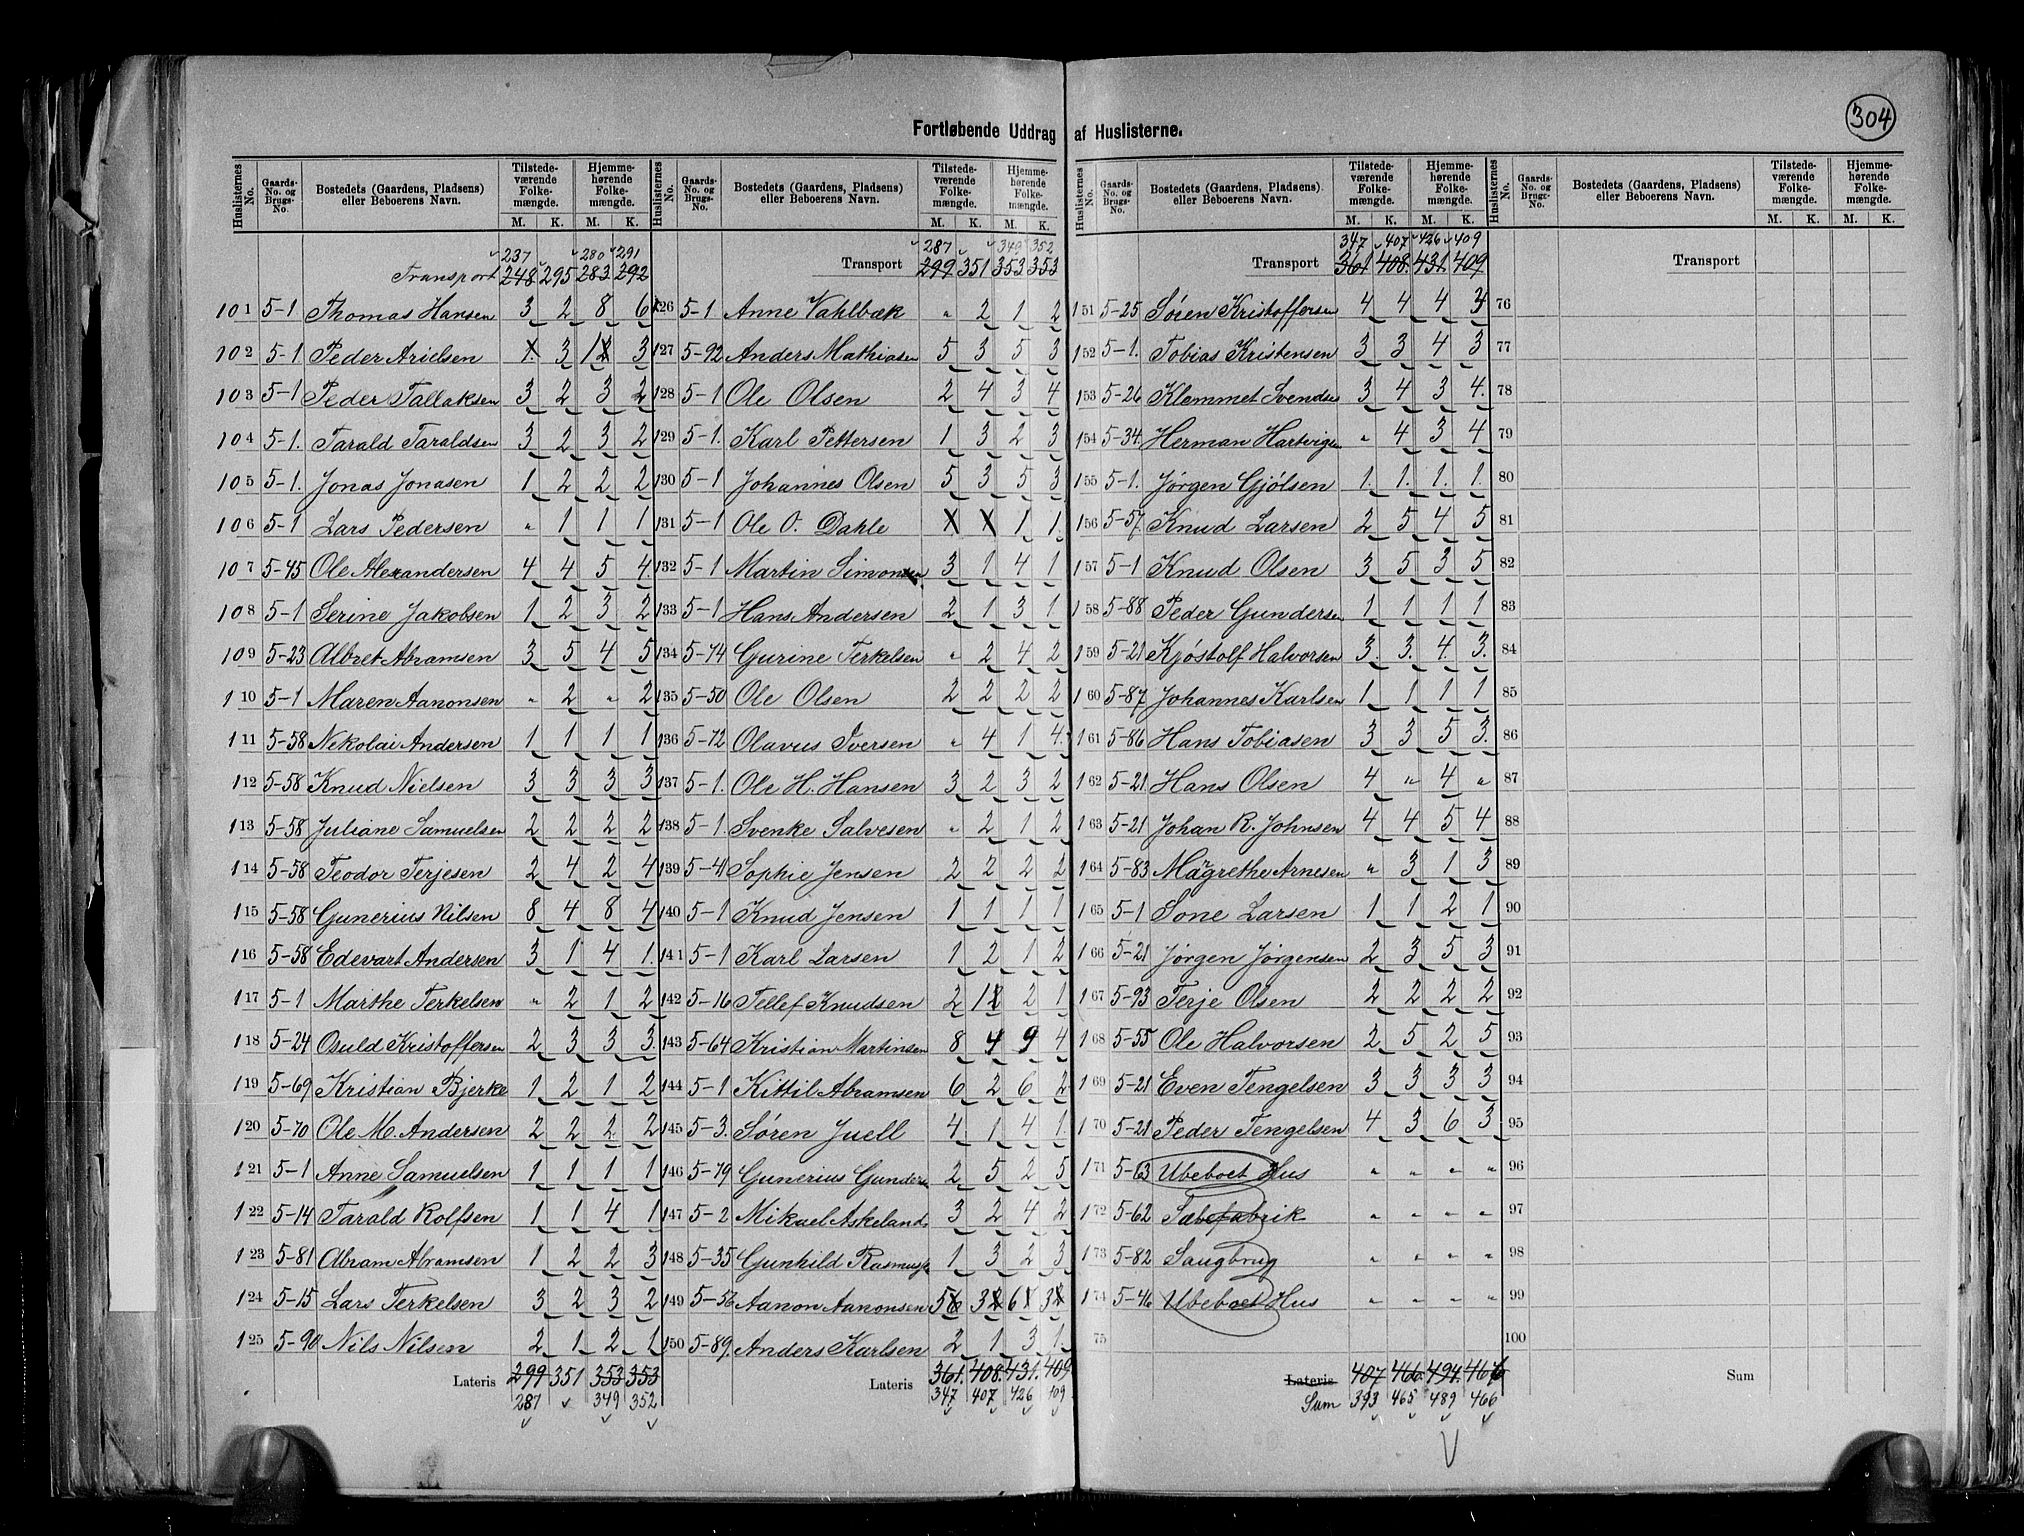 304
Fortløbende Uddrag af Huslisterne.
Huslisternes No. Gaards-No. og Brugs-No. Bostedets (Gaardens, Pladsens) eller Beboerens Navn. Tilstedeværende Folkemængde. M. K. Hjemmehørende Folkemængde. M. K.
237 280 291
Transport 248 295 283 292
101 5-1 Thomas Hansen 3 2 8 6
102 5-1 Peder Arielsen 1 3 1 3
103 5-1 Peder Tallaksen 3 2 3 2
104 5-1. Tarald Taraldsen 3 2 3 2
105 5-1. Jonas Jonasen 1 2 2 2
106 5-1 Lars Pedersen " 1 1 1
107 5-45 Ole Alexandersen 4 4 5 4
108 5-1 Serine Jakobsen 1 2 3 2
109 5-23 Albret Abramsen 3 5 4 5
110 5-1 Maren Aanonsen " 2 " 2
111 5-58 Nekolai Andersen 1 1 1 1
112 5-58 Knud Nielsen 3 3 3 3
113 5-58 Juliane Samuelsen 2 2 2 2
114 5-58 Teodor Terjesen 2 4 2 4
115 5-58 Gunerius Nilsen 8 4 8 4
116 5-58 Edevart Andersen 3 1 4 1.
117 5-1 Marthe Terkelsen " 2 1 2
118 5-24 Osuld Kristoffersen 2 3 3 3.
119 5-69 Kristian Bjerke 1 2 1 2
120 5-70 Ole M. Andersen 2 2 2 2
121 5-1 Anne Samuelsen 1 1 1 1
122 5-14 Tarald Rolfsen 1 1 4 1
123 5-81 Abram Abramsen 1 2 2 3
124 5-15 Lars Terkelsen 3 2 3 2
125 5-90 Nils Nilsen 2 1 2 1
Lateris 299 351 353 353
287 349 352
Huslisternes No. Gaards-No. og Brugs-No. Bostedets (Gaardens, Pladsens) eller Beboerens Navn. Tilstedeværende Folkemængde. M. K. Hjemmehørende Folkemængde. M. K.
287 349 352
Transport 299 351 353 353
126 5-1 Anne Vahlbæk " 2 1 2
127 5-92 Anders Mathiasen 5 3 5 3
128 5-1 Ole Olsen 2 4 3 4
129 5-1. Karl Pettersen 1 3 2 3
130 5-1 Johannes Olsen 5 3 5 3
131 5-1 Ole O. Dahle X X 1 1.
132 5-1 Martin Simonsen 3 1 4 1
133 5-1 Hans Andersen 2 1 3 1
134 5-74 Gurine Terkelsen " 2 4 2
135 5-50 Ole Olsen 2 2 2 2
136 5-72 Olavus Iversen " 4 1 4.
137 5-1. Ole H. Hansen 3 2 3 2
138 5-1. Svenke Salvesen " 2 1 2
139 5-41 Sophie Jensen 2 2 2 2
140 5-1 Knud Jensen 1 1 1 1
141 5-1 Karl Larsen 1 2 1 2
142 5-16 Tellef Knudsen 2 1 2 1
143 5-64 Kristian Martinsen 8 4 9 4
144 5-1 Kittil Abramsen 6 2 6 2
145 5-3. Søren Juell 4 1 4 1.
146 5-79 Gunerius Gunders 2 5 2 5
147 5-2 Mikael Askeland 3 2 4 2
148 5-35 Gunhild Rasmus 1 3 2 3
149 5-56 Aanon Aanonsen 5 3 6 3
150 5-89. Anders Karlsen 2 1 3 1.
Lateris 361. 408. 431. 409
347 407 426 409
Huslisternes No. Gaards-No. og Brugs-No. Bostedets (Gaardens, Pladsens) eller Beboerens Navn. Tilstedeværende Folkemængde. M. K. Hjemmehørende Folkemængde. M. K.
347 407 426 409
Transport 361 408. 431. 409
151 5-25 Søren Kristoffersen 4 4 4 3
152 5-1. Tobias Kristensen 3 3 4 3
153 5-26 Klemmet Svendsen 3 4 3 4.
154 5-34. Herman Hartvigsen " 4 3 4
155 5-1. Jørgen Gjølsen 1. 1. 1. 1.
156 5-57 Knud Larsen 2 5 4 5
157 5-1 Knud Olsen 3 5 3 5
158 5-88 Peder Gundersen 1 1 1 1
159 5-21 Kjøstolf Halvorsen 3. 3. 4. 3.
160 5-87 Johannes Karlsen 1 1 1 1
161 5-86 Hans Tobiasen 3 3 5 3.
162 5-21. Hans Olsen 4 " 4 "
163 5-21 Johan R. Johnsen 4 4 5 4
164 5-83 Margrethe Arnesen " 3 1 3
165 5-1 Sone Larsen 1 1 2 1
166 5-21 Jørgen Jørgensen 2 3 5 3
167 5-93 Terje Olsen 2 2 2 2
168 5-55 Ole Halvorsen 2 5 2 5
169 5-21 Even Tengelsen 3 3 3 3
170 5-21 Peder Tengelsen 4 3 6 3
171 5-63 Ubeboet Hus " " " "
172 5-62 Sæbefabrik " " " "
173 5-82 Saugbrug " " " "
174 5-46 Ubeboet Hus " " " "
75
Lateris 407 466. 494. 467
Sum 393 465 489 466
Huslisternes No. Gaards-No. og Brugs-No. Bostedets (Gaardens, Pladsens) eller Beboerens Navn. Tilstedeværende Folkemængde. M. K. Hjemmehørende Folkemængde. M. K.
Transport
76
77
78
79
80
81
82
83
84
85
86
87
88
89
90
91
92
93
94
95
96
97
98
99
100
Sum